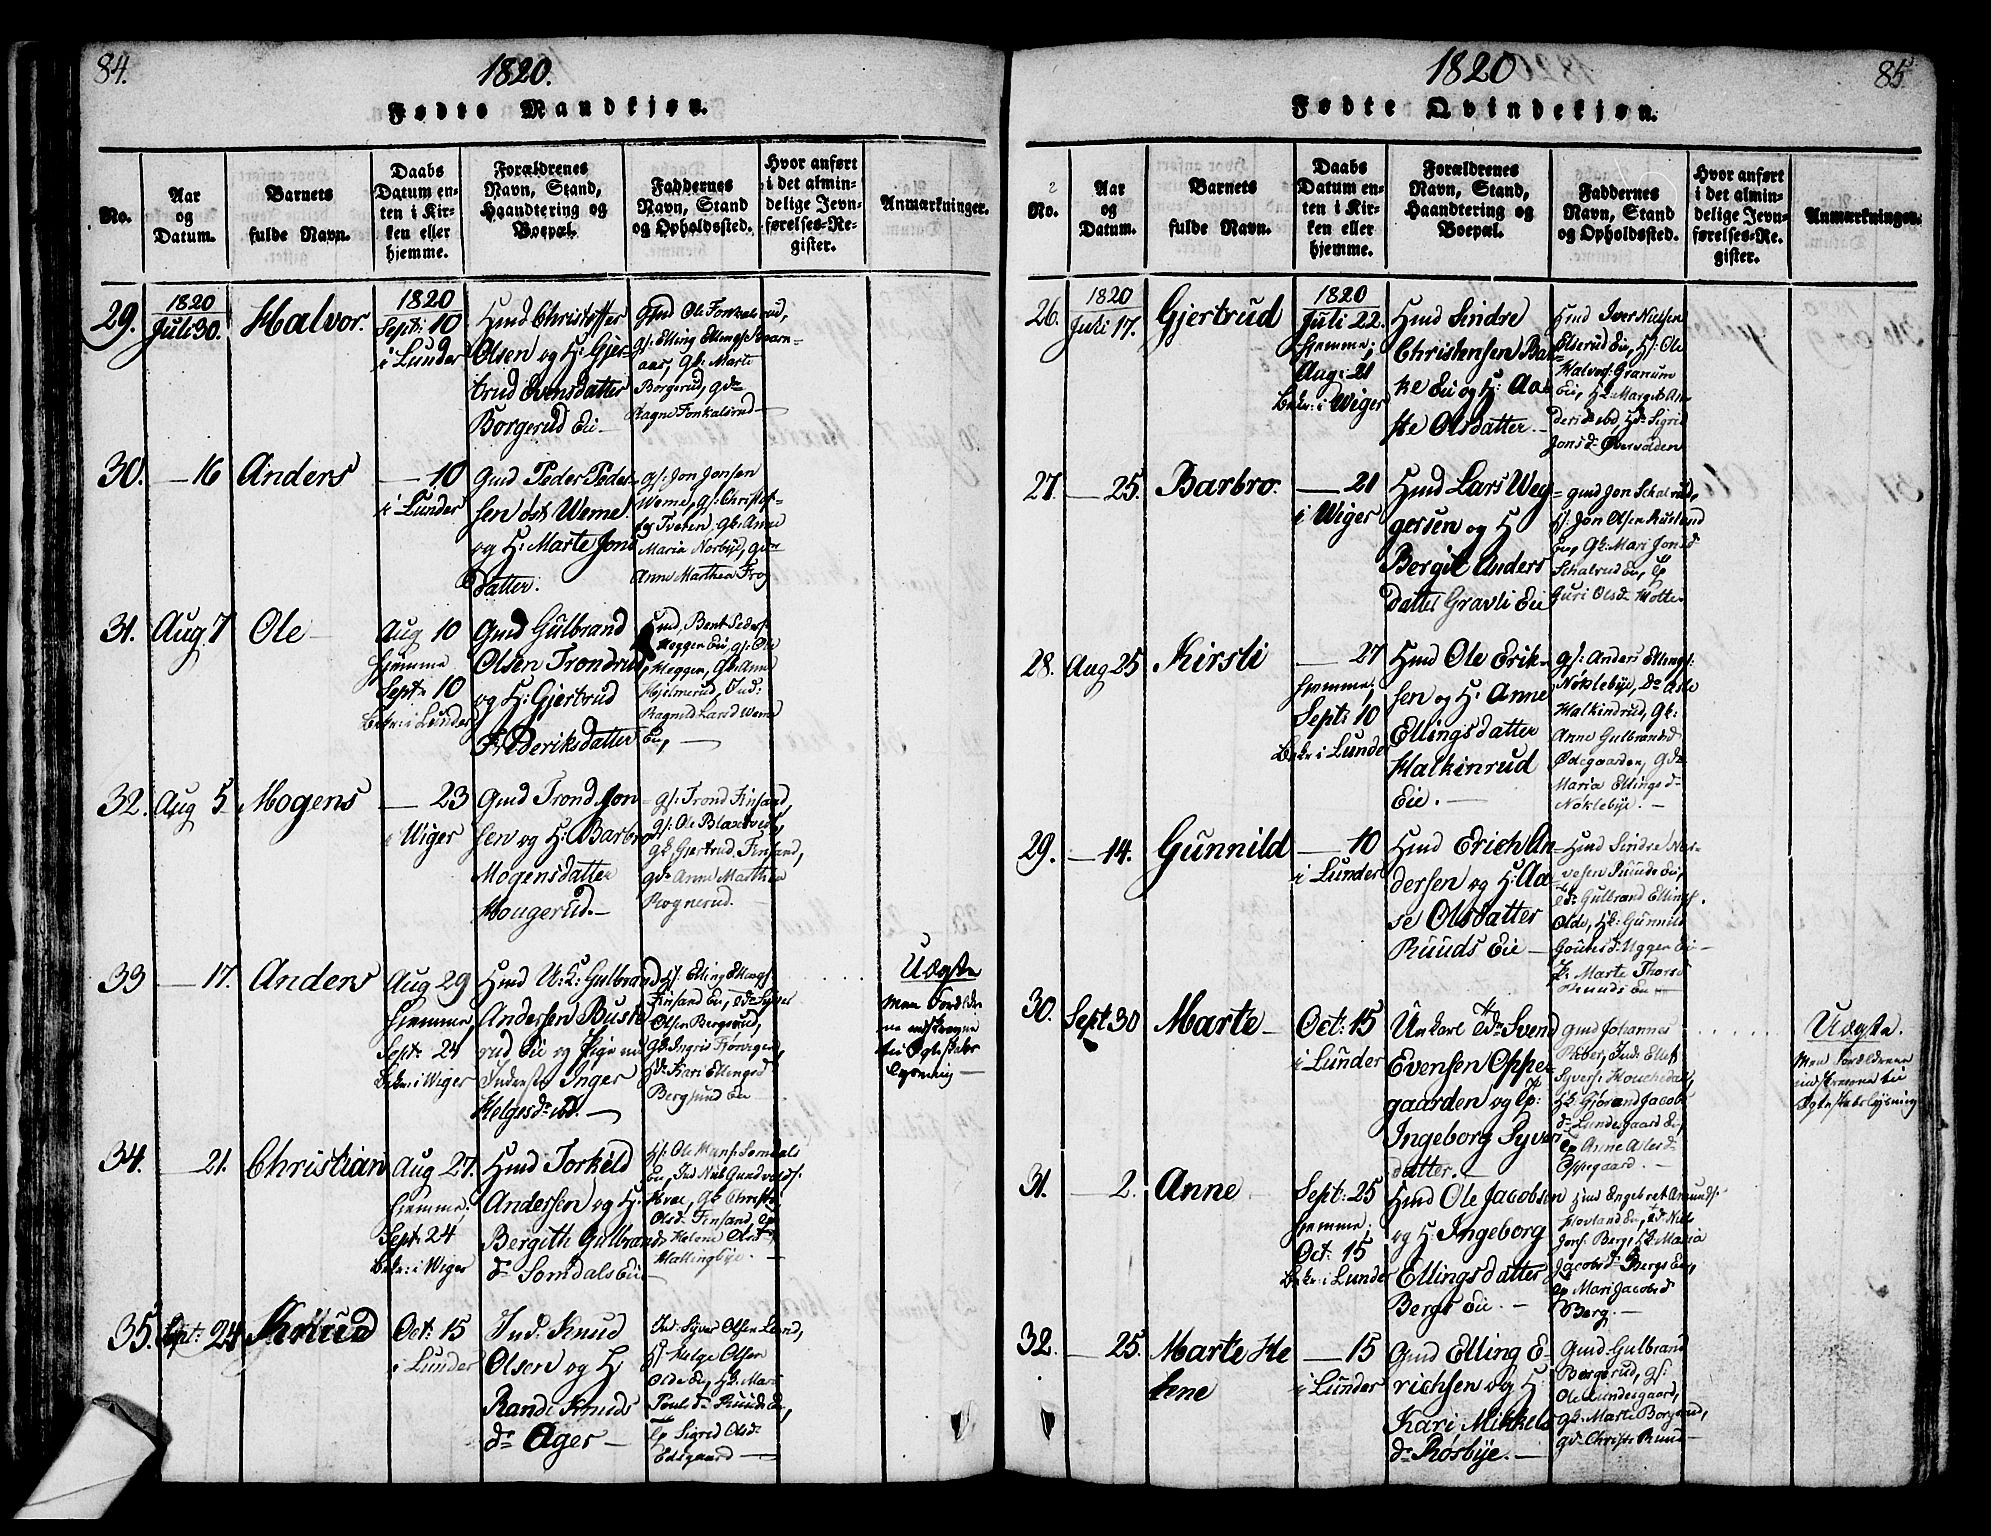 84.
1820.
Fødte Mandkjøn.
No.
Aar
og
Datum.
Barnets
fulde Navn.
Daabs
Datum en-
ten i Kir-
ken eller
hjemme.
Forældrenes
Navn, Stand,
Haandtering og
Boepæl.
Faddernes
Navn, Stand
og Opholdssted.
Hvor anført
i det almin-
delige Jevn-
førelses-Re-
gister.
Anmærkninger.
29.
1820
Juli 30.
Halvor.
1820
Sept: 10
i Lunder
Hmd Christoffer
Olsen og H: Gjer-
trud Evensdatter
Borgerud Eie-
Gmd Ole Fonkalsrud,
gs: Elling Ellings:
Marte
Borgerud, gd:
Ragne Fonkalsrud
30.
- 16
Anders
- 10
i Lunder
Gmd Peder Peder-
sen øst Weme
og H: Marte Jons
datter.
gs: Jon Jonsen
Weme, gs: Christof-
fer Tveten, gk: Anne
Maria Norbye, gd:
Anne Marthea Frog
31.
Aug 7
Ole -
Aug 10
hjemme
Sept: 10
Bekr: i Lunder
Gmd Gulbrand
Olsen Trondrud
og H: Gjertrud
Frideriksdatter
Hmd, Bent Peders:
Heggen Eie, gs: Ole
Heggen, Gk: Anne
Hjelmerud, Ind:
Ragnild Larsd Weme
Eie,
32.
Aug 5
Mogens
- 23
i Wiger
Gmd Trond Jon-
sen og H: Barbro
Mogensdatter
Hougerud.-
gs: Trond Finsand,
gs: Ole
gk: Gjertrud Finsand,
gd: Anne Marthea
Rognerud.
33
- 17.
Anders
Aug 29
hjemme,
Sept: 24
Bekr: i Wiger
Hmd U:K: Gulbrand
Andersen Buske-
rud Eie og Pige
Inderste Inger
Helgesd: ibd. -
Hs: Elling Ellings:
Finsand Eie,
Olsen Bergsund,
Gk: Ingris
Hd: Kari Ellingsd
Bergsund Eie
Uægte
men Forældre-
ne indtegne
til Ægteskabs
Lysning -
34.
- 21.
Christian
Aug 27.
hjemme.
Sept: 24
Bekr: i Wiger
Hmd Torkild
Andersen og H:
Bergith Gulbrands
d: Somdals Eie
Hs: Ole Hans: Somdals
Eie, Ind Niels Gundvolds:
Hval, Gk: Christi
Olsd: Finsand, Ep
Helene Olsd:
Hallingbye.
35.
Sept: 24
Knud
Oct: 15
i Lunder
Ind: Knud
Olsen og H
Randi Knuds
d: Ager -
Ind: Syver Olsen Lend,
Hs: Helge Olsen
Olde Eie, Hk: Mari
Pouls d: Ruuds Eie,
Ep Sigrid Olsd:
Edsgaard -
85.
1820
Fødte Qvindekjøn.
No.
Aar
og
Datum.
Barnets
fulde Navn.
Daabs
Datum en-
ten i Kir-
ken eller
hjemme.
Forældrenes
Navn, Stand,
Haandtering og
Boepæl.
Faddernes
Navn, Stand
og Opholdssted.
Hvor anført
i det almin-
delige Jevn-
førelses-Re-
gister.
Anmærkninger.
26.
1820
Juli 17.
Gjertrud
1820
Juli 22.
hjemme,
Aug: 21
Bekr: i Wiger
Hmd Sindre
Christensen Bak-
ke Eie og H: Aa-
ste Olsdatter.-
Hmd Iver Nielsen
Elserud Eie, Hs: Ole
Halvors: Granum
Eie, Hk: Margit An-
ders d: ibd, Hd: Sigrid
Jons d:
27.
- 25.
Barbro.
- 21
i Wiger
Hmd Lars Wey-
gersen og H
Bergit Anders
datter Gravli Eie
gmd Jon Schalrud,
Hs: Jon Olsen
Eie, Gk: Mari Jonsd
Schalrud Eie, Ep
Guri Olsd:
28.
Aug 25
Kirsti
- 27
hjemme,
Sept: 10
Bekr: i Lunder
Hmd Ole Erik-
sen og H: Anne
Ellingsdatter
Halkinrud
Eie. -
gs: Anders Ellings:
Nøklebye, D:
Halkindrud, Gk:
Anne Gulbrandsd
Ødegaarden, gd:
Maria Ellingsd:
Nøklebye. -
29.
- 14.
Gunnild
- 10
i Lunder
Hmd Erich An-
dersen og H: Aa-
se Olsdatter
Ruuds Eie
Hmd Sindre
Ruuds Eie,
Gulbrand Ellings:
Olde, Hk: Gunnild
Eie -
Marte Thorsd
Ruuds Eie -
30.
Sept 30
Marte -
Oct: 15
i Lunder
Unkarl Svend
Evensen Oppe-
gaarden og Ep:
Ingeborg Syvers
datter. -
gmd Johannes
Ind: Ellef
Syvers:
Hk: Gjørand Jacobs
d: Lundesgaard Eie,
Ep Anne
Oppegaard. -
Uægte.
Men Forældrene
indtegne til
Ægteskabslysning
31.
- 2.
Anne
Sept: 25
hjemme.
Oct: 15
Bekr: i Lunder
Hmd Ole Jacobsen
og H Ingeborg
Ellings datter
Bergs Eie. -
Hmd Engebret Amunds:
Hovland Eie, Niels
Jons: Berg, Hk: Maria
Jacobs d: Bergs Eie,
Ep Mari Jacobsd
Berg. -
32.
- 25.
Marte He
lene
- 15
i Lunder
Gmd Elling E-
richsen og H:
Kari, Mikkels
d: Røsbye. -
Gmd Gulbrand
Borgerud, gs:
Ole Lundesgaard,
gk: Marte Borgerud,
gd: Christi Ruud -